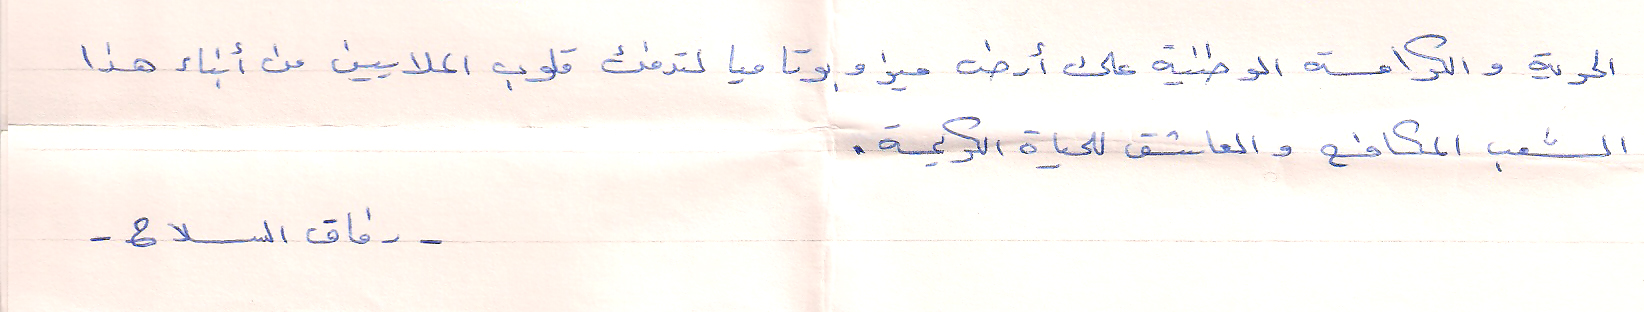 الحرية و الكرامة الوطنية على أرض ميزوبوتاميا لتدفئ قلوب الملايين من أبناء هذا
الشعب المكافح و العاشق للحياة الكريمة .
- رفاق السلاح -